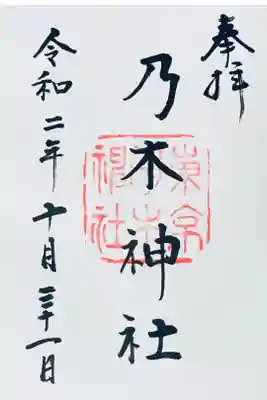 奉拝
乃木神社
東京乃木神社
令和二年十月三十一日